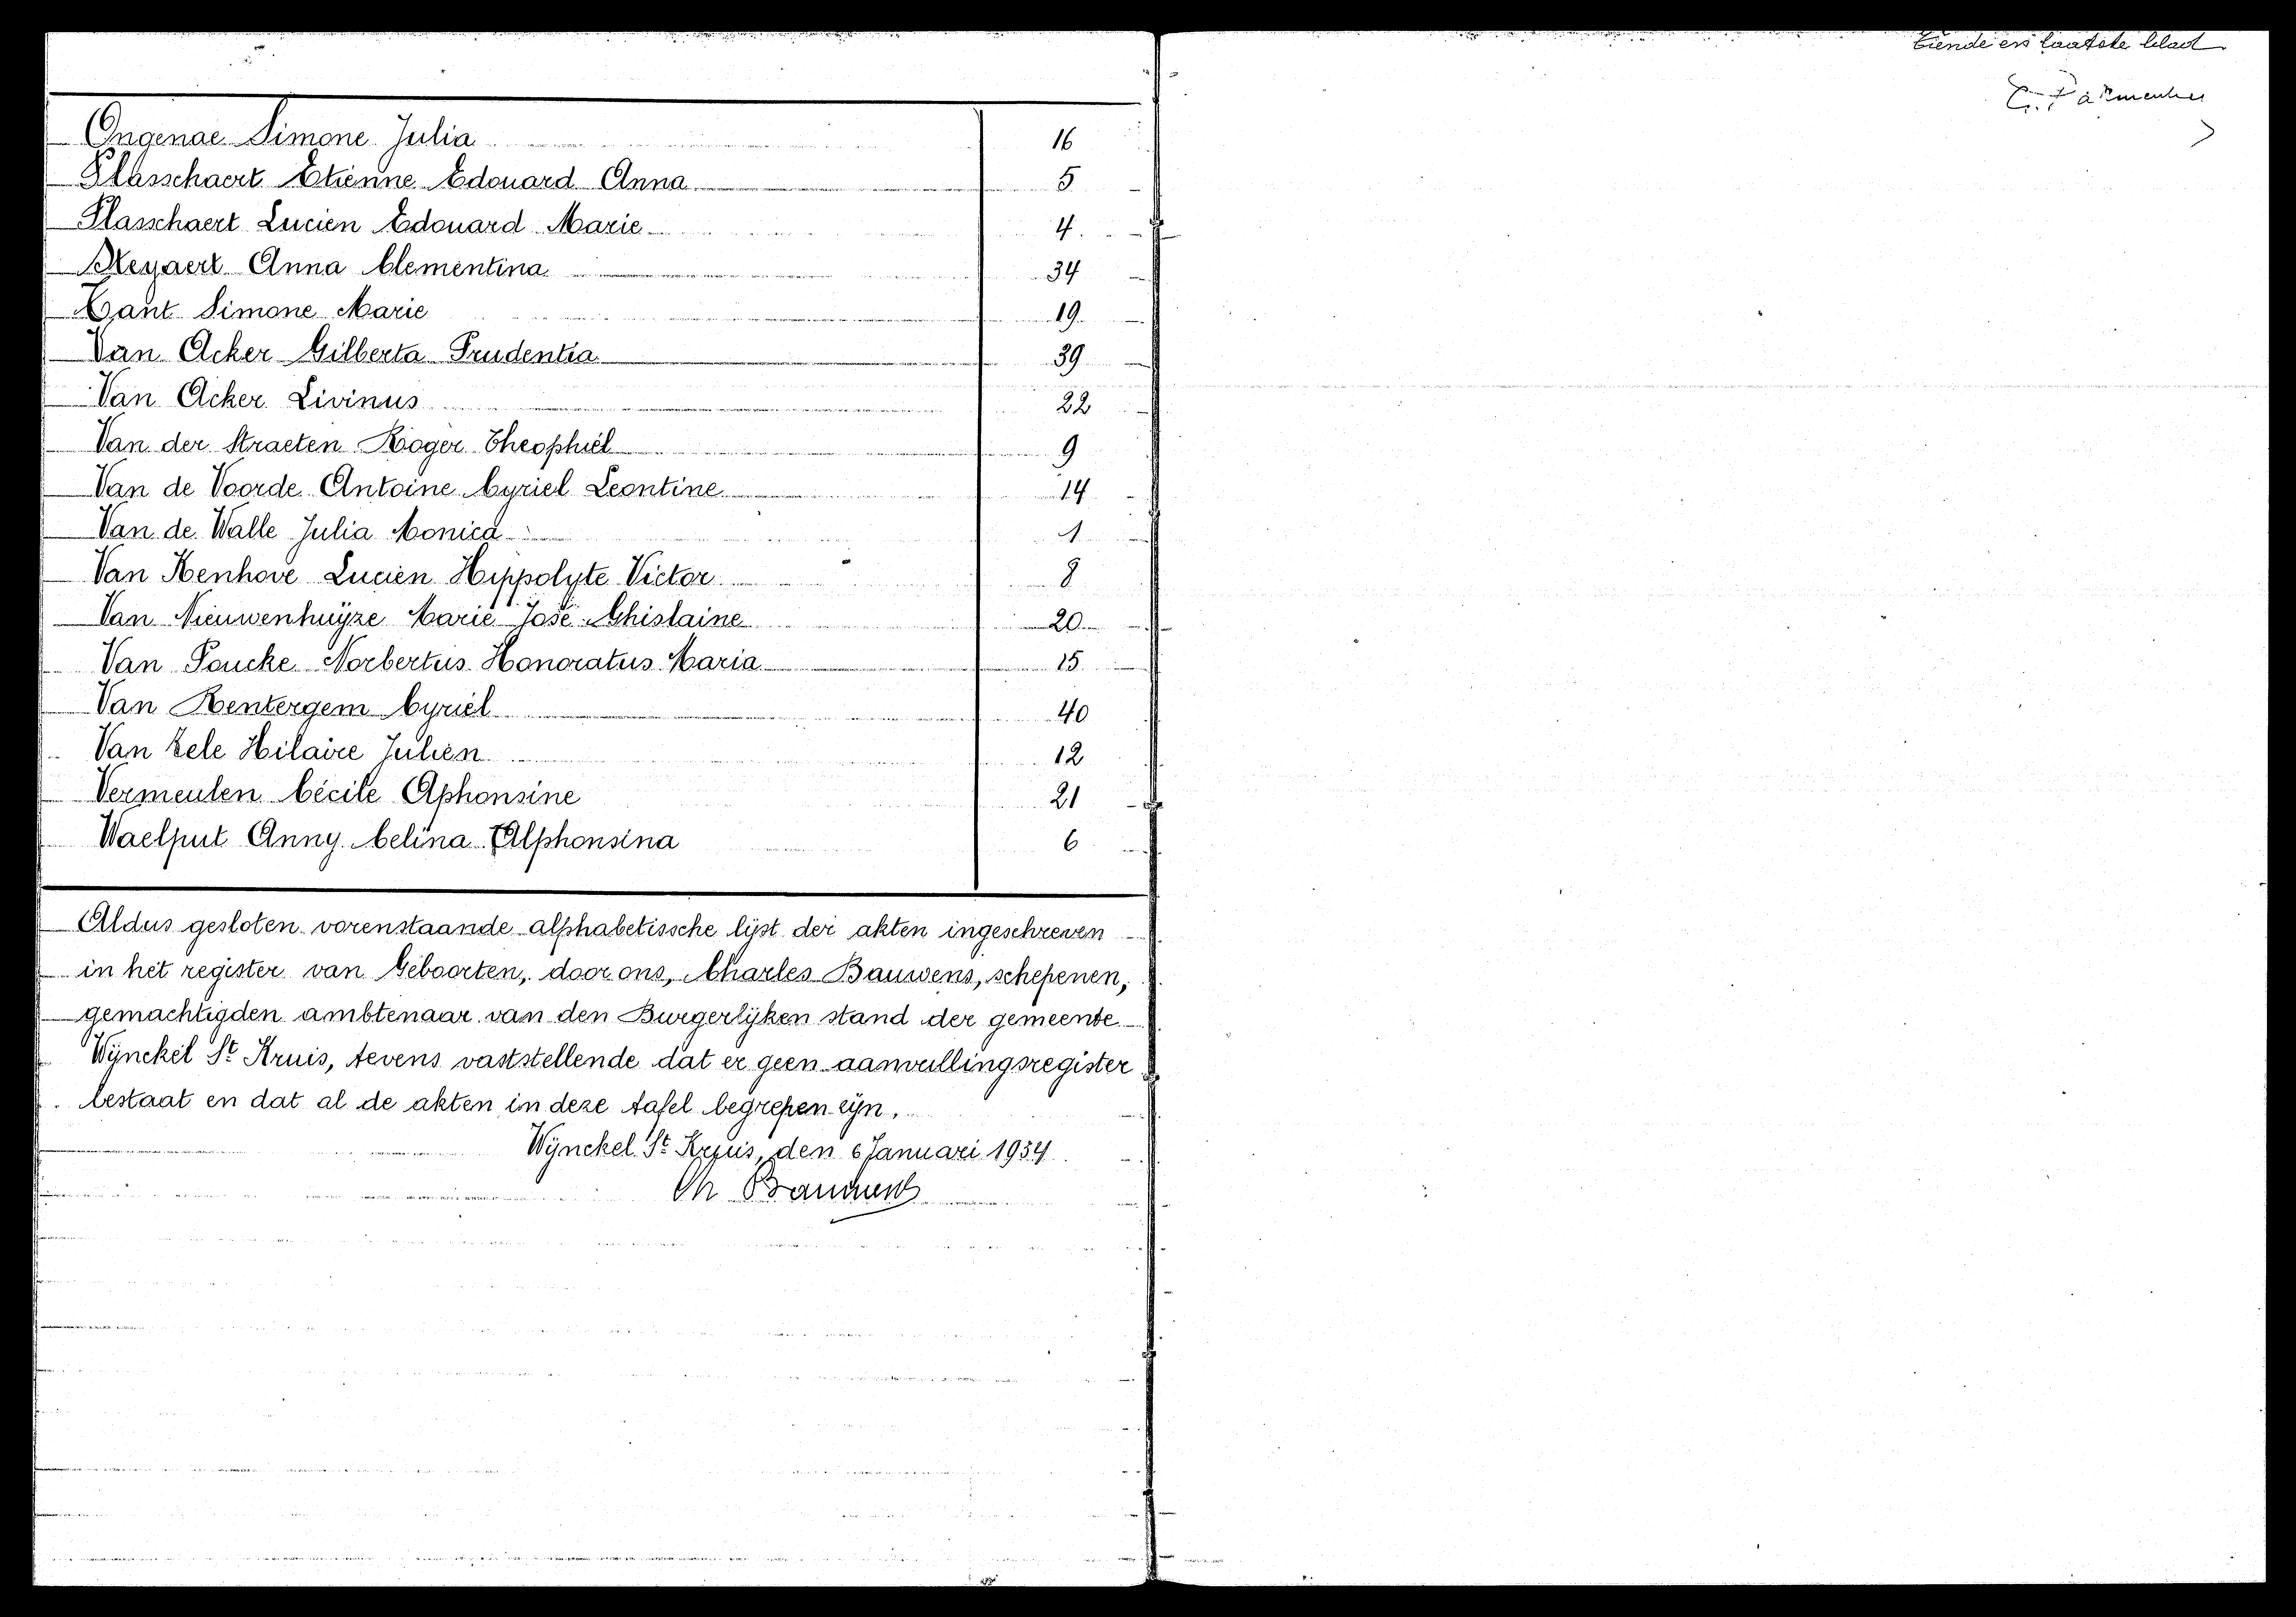 Ongenae Simone Julia 16
Plasschaert Etienne Edouard Anna 5
Plasschaert Lucien Edouard Marie 4
Reyaert Anna Clementina 34
Sant Simone Marie 19
Van Acker Gilberta Prudentia 39
Van Acker Livinus 22
Van der Straeten Roger Theophiel 9
Van de Voorde Antoine Cyriel Leontine 14
Van de Walle Julia Monica 1
Van Kenhove Lucien Hippolyte Victor 8
Van Nieuwenhuyze Marie José Ghislaine 20
Van Poucke Norbertus Honoratus Maria 15
Van Rentergem Cyriel 40
Van Zele Hilaire Julien 12
Vermeulen Cécile Aphonsine 21
Waelput Anny Celina Alphonsina 6
Aldus gesloten vorenstaande alphabetissche lijst der akten ingeschreven
in het register van Geboorten, door ons, Charles Bauwens, schepenen,
gemachtigden ambtenaar van den Burgerlijken stand der gemeente
Wynckel St Kruis, tevens vaststellende dat er geen aanvullingsregister
bestaat en dat al de akten in deze tafel begrepen zijn.
Wynckel St Kruis, den 6 Januari 1934
Ch Bauwens
tiende en laatste blad